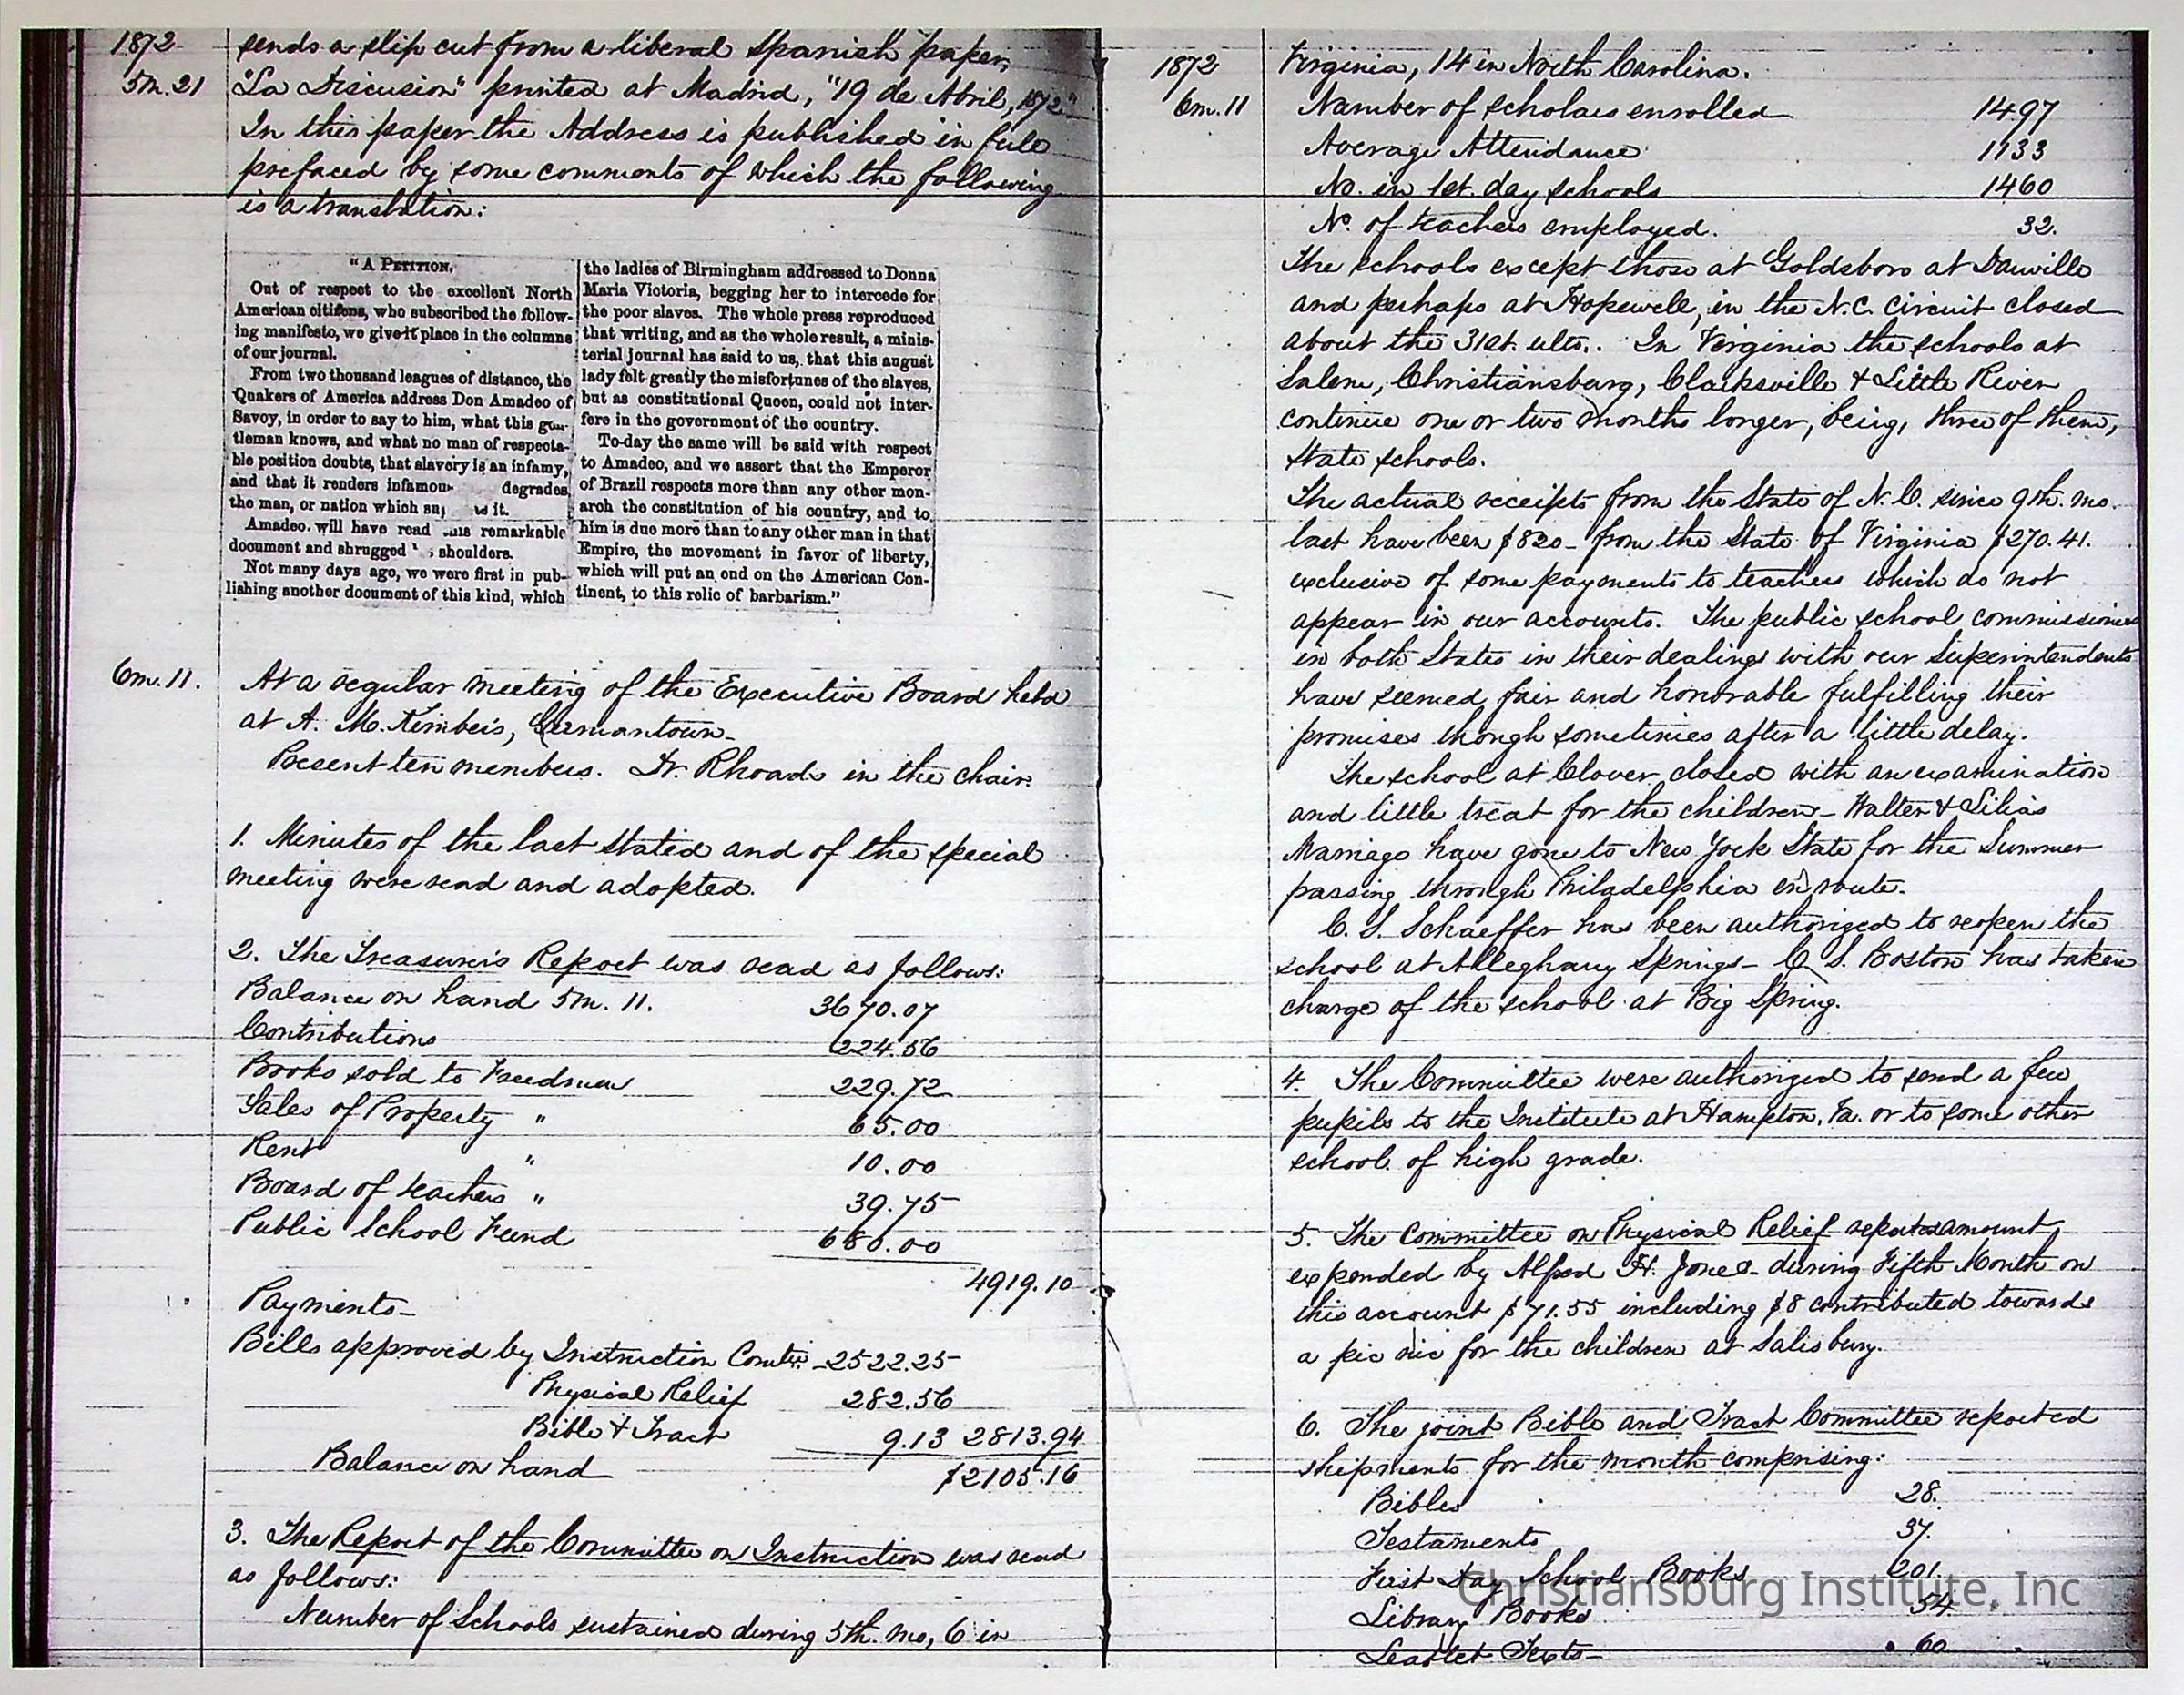 1872
sends a slip cut from a liberal Spanish paper,
5m.21
"La Discusion" printed at Madrid, "19 de Abril, 1872"
In this paper the Address is published in full
prefaced by some comments of which the following
is a translation:
"A PETITION.
Out of respect to the excellent North
American citizens, who subscribed the follow-
ing manifesto, we give it place in the columns
of our journal.
From two thousand leagues of distance, the
Quakers of America address Don Amadeo of
Savoy, in order to say to him, what this gen-
tleman knows, and what no man of respecta-
ble position doubts, that slavery is an infamy,
and that it renders infamous degrades,
the man, or nation which it.
Amadeo will have read this remarkable
document and shrugged shoulders.
Not many days ago, we were first in pub-
lishing another document of this kind, which
the ladies of Birmingham addressed to Donna
Maria Victoria, begging her to intercede for
the poor slaves. The whole press reproduced
that writing, and as the whole result, a minis-
terial journal has said to us, that this august
lady felt greatly the misfortunes of the slaves,
but as constitutional Queen, could not inter-
fere in the government of the country.
To-day the same will be said with respect
to Amadeo, and we assert that the Emperor
of Brazil respects more than any other mon-
arch the constitution of his country, and to
him is due more than to any other man in that
Empire, the movement in favor of liberty,
which will put an end on the American Con-
tinent, to this relic of barbarism."
6m.11.
At a regular meeting of the Executive Board held
at A. M. Kimber's, Germantown_
Present ten members. Dr. Rhoads in the chair.
1. Minutes of the last stated and of the special
meeting were read and adopted.
2. The Treasurer's Report was read as follows:
Balance on hand 5m. 11. 3670.07
Contributions 224.56
Books sold to Freedmen 229.72
Sales of Property " 65.00
Rent " 10.00
Board of teachers " 39.75
Public School Fund 680.00
4919.10
Payments_
Bills approved by Instruction Comtee _2522.25
Physical Relief 282.56
Bible & Tract 9.13 2813.94
Balance on hand $2105.16
3. The Report of the Committee on Instruction was read
as follows:
Number of Schools sustained during 5th. mo, 6 in
1872
Virginia, 14 in North Carolina.
6m.11
Number of scholars enrolled 1497
Average Attendance 1133
No. in 1st. day schools 1460
No. of teachers employed. 32.
The schools except those at Goldsboro at Danville
and perhaps at Hopewell, in the N.C. circuit closed
about the 31st. ulto.. In Virginia the schools at
Salem, Christiansburg, Clarksville & Little River
continue one or two months longer, being, three of them,
State schools.
The actual receipts from the State of N.C. since 9th. mo.
last have been $820_ from the State of Virginia $270.41.
exclusive of some payments to teachers which do not
appear in our accounts. The public school commissioners
in both States in their dealings with our Superintendents
have seemed fair and honorable fulfilling their
promises though sometimes after a little delay.
The school at Clover closed with an examination
and little treat for the children_ Walter & Lilias
Marriage have gone to New York State for the Summer
passing through Philadelphia en route.
C. S. Schaeffer has been authorized to reopen the
school at Alleghany Springs_ C. S. Boston has taken
charge of the school at Big Spring.
4. The Committee were authorized to send a few
pupils to the Institute at Hampton, Va. or to some other
school of high grade.
5. The Committee on Physical Relief reported amount
expended by Alfred H. Jones during Fifth Month on
this account $71.55 including $8 contributed towards
a pic nic for the children at Salisbury.
6. The joint Bible and Tract Committee reported
shipments for the month comprising:
Bibles 28.
Testaments 37.
First Day School Books 201.
Library Books 54.
Leaflet Texts_ 60
Christiansburg Institute, Inc